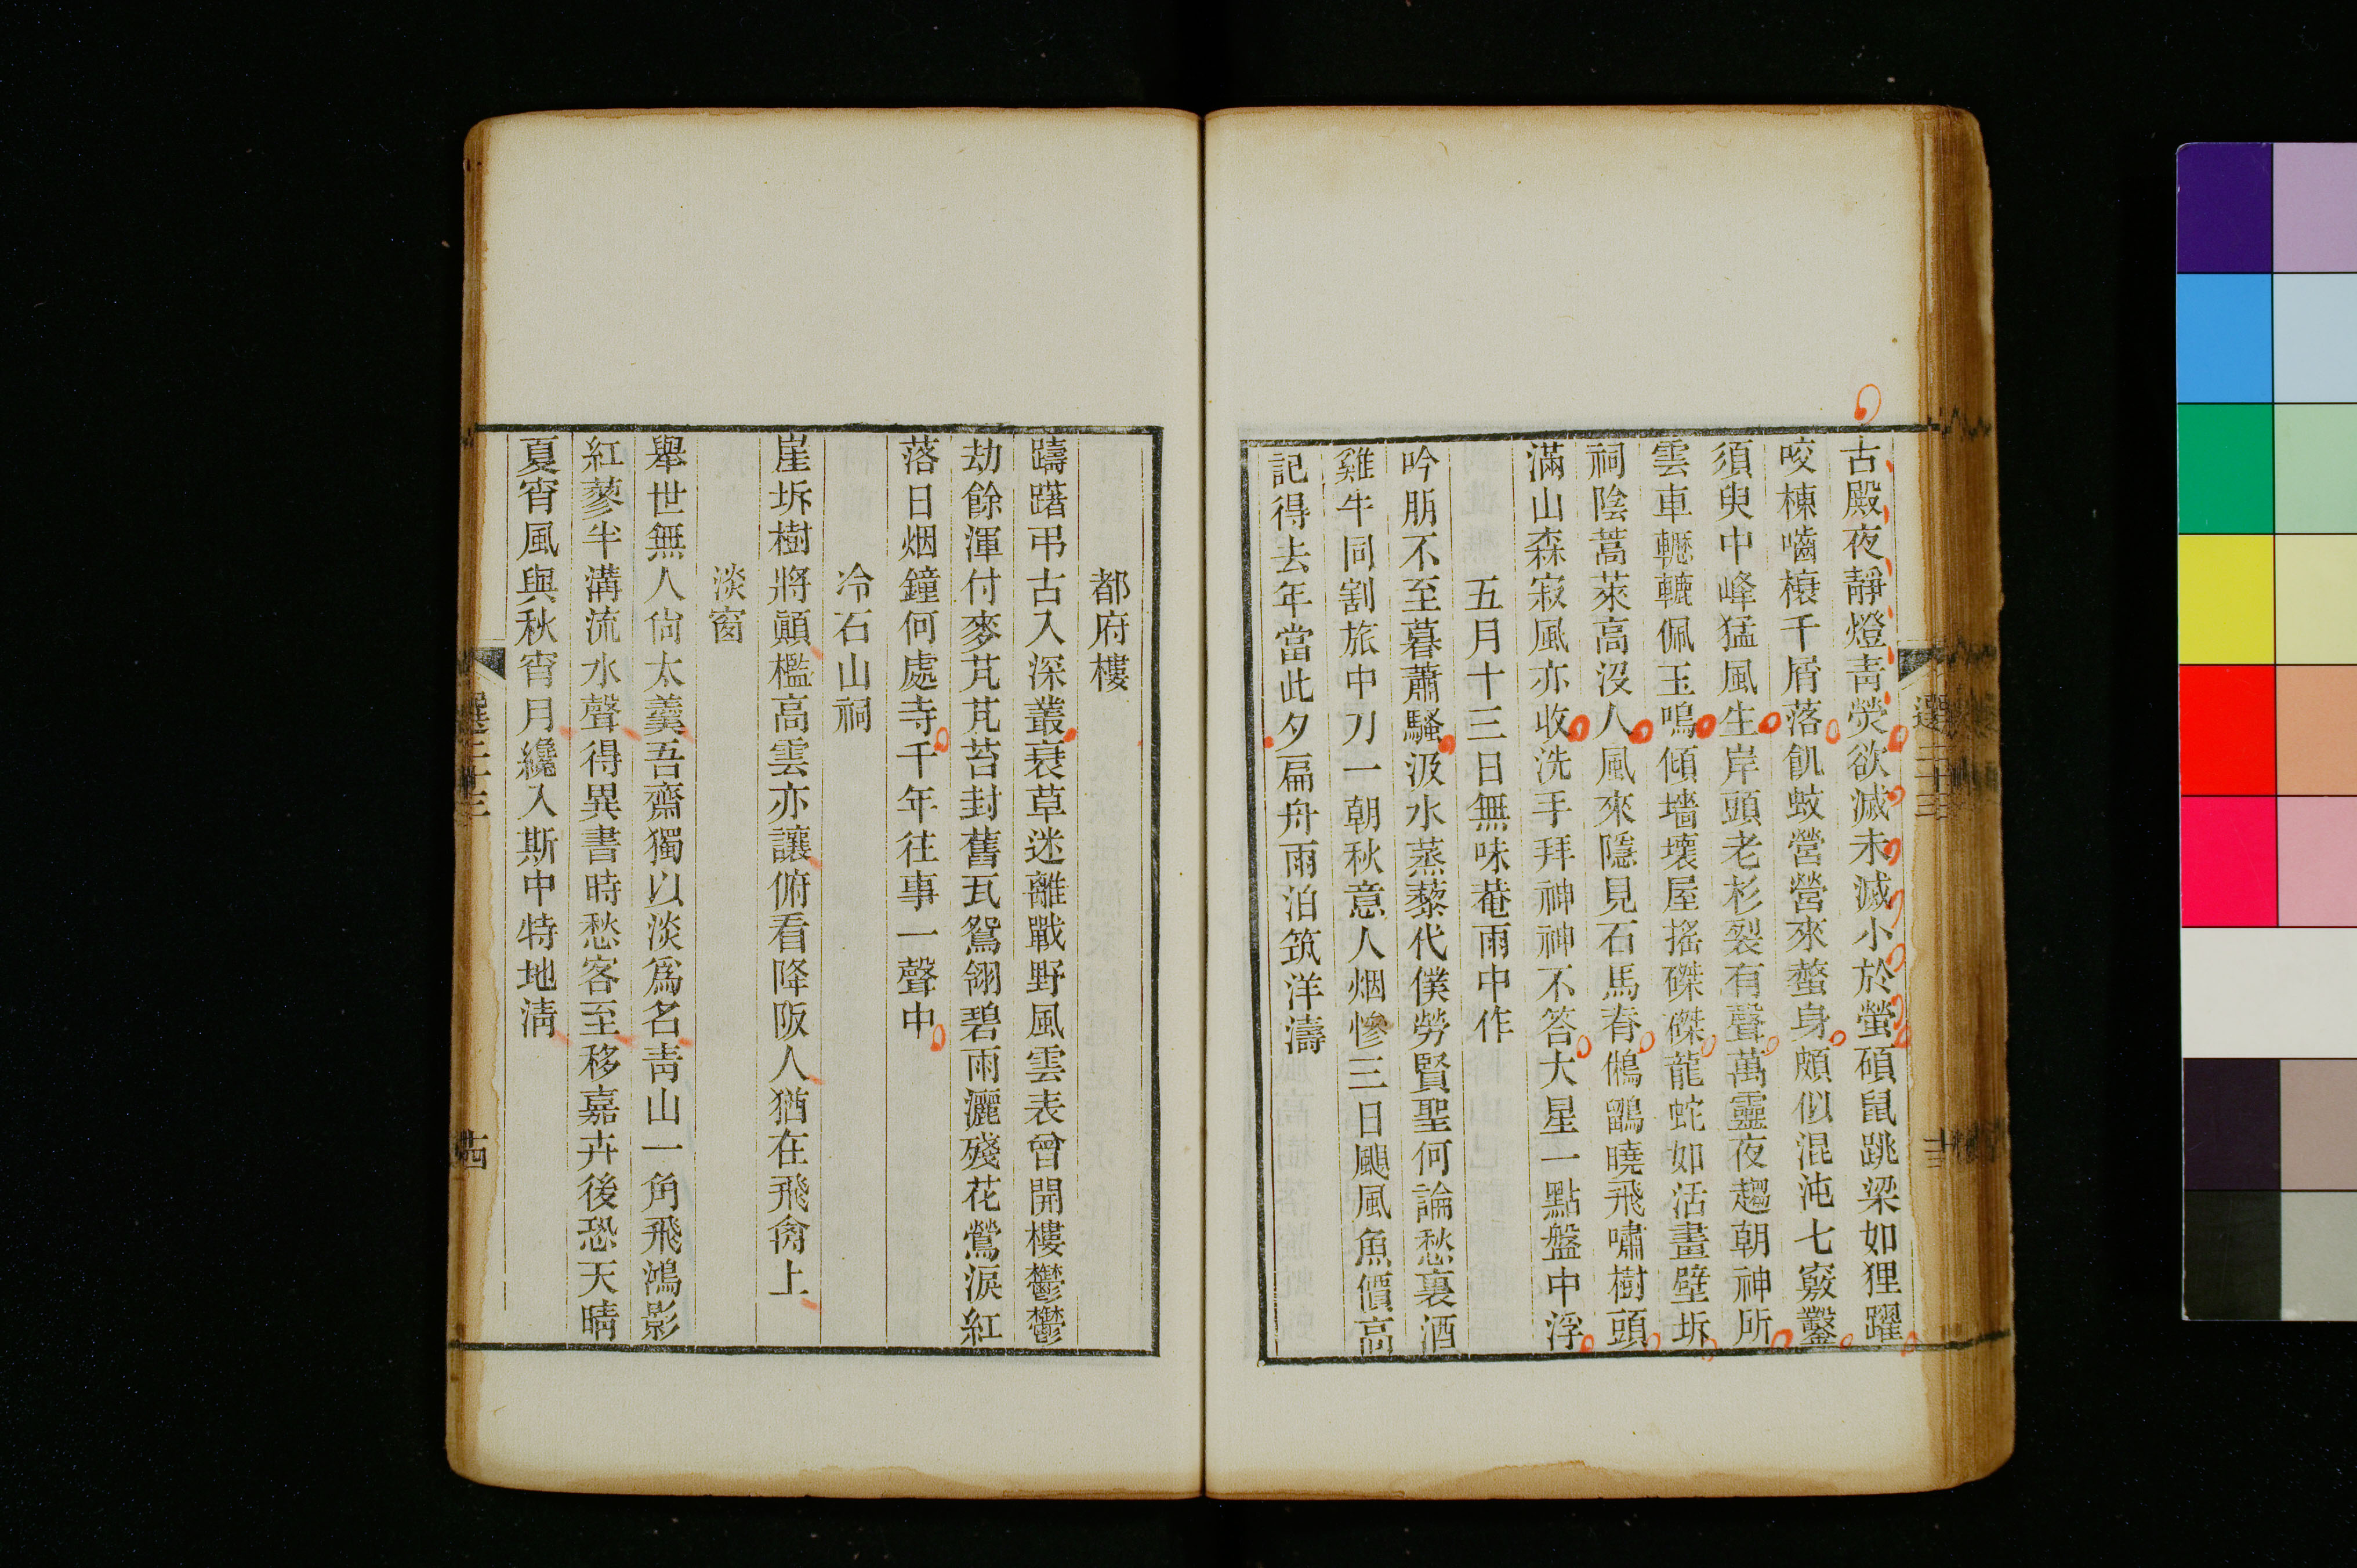 古殿夜靜燈靑熒欲滅未滅小於螢碩鼠跳梁如狸躍
咬棟嚙榱千屑落飢蚊營營來螫身頗似混沌七竅鑿
須臾中峰猛風生岸頭老杉裂有聲萬靈夜趨朝神所
雲車轣轆佩玉鳴傾墻壞屋搖磔磔龍蛇如活畫壁坼
祠陰蒿萊高沒人風來隱見石馬脊鵂鶹曉飛嘯樹頭
滿山森寂風亦收洗手拜神神不答大星一點盤中浮
五月十三日無味菴雨中作
吟朋不至暮蕭騷汲水蒸藜代僕勞賢聖何論愁裏酒
雞牛同割旅中刀一朝秋意人烟慘三日颶風魚價高
記得去年當此夕扁舟雨泊筑洋濤
選二十三
十三
都府樓
躊躇弔古入深叢衰草迷離戰野風雲表曾開樓鬱鬱
劫餘渾付麥芃芃苔封舊瓦鴛翎碧雨灑殘花鶯淚紅
落日烟鐘何處寺千年往事一聲中
冷石山祠
崖坼樹將顚檻高雲亦讓俯看降阪人猶在飛禽上
淡窗
舉世無人尙太羹吾齋獨以淡爲名靑山一角飛鴻影
紅蓼半溝流水聲得異書時愁客至移嘉卉後恐天晴
夏宵風與秋宵月纔入斯中特地淸
選二十三
十四